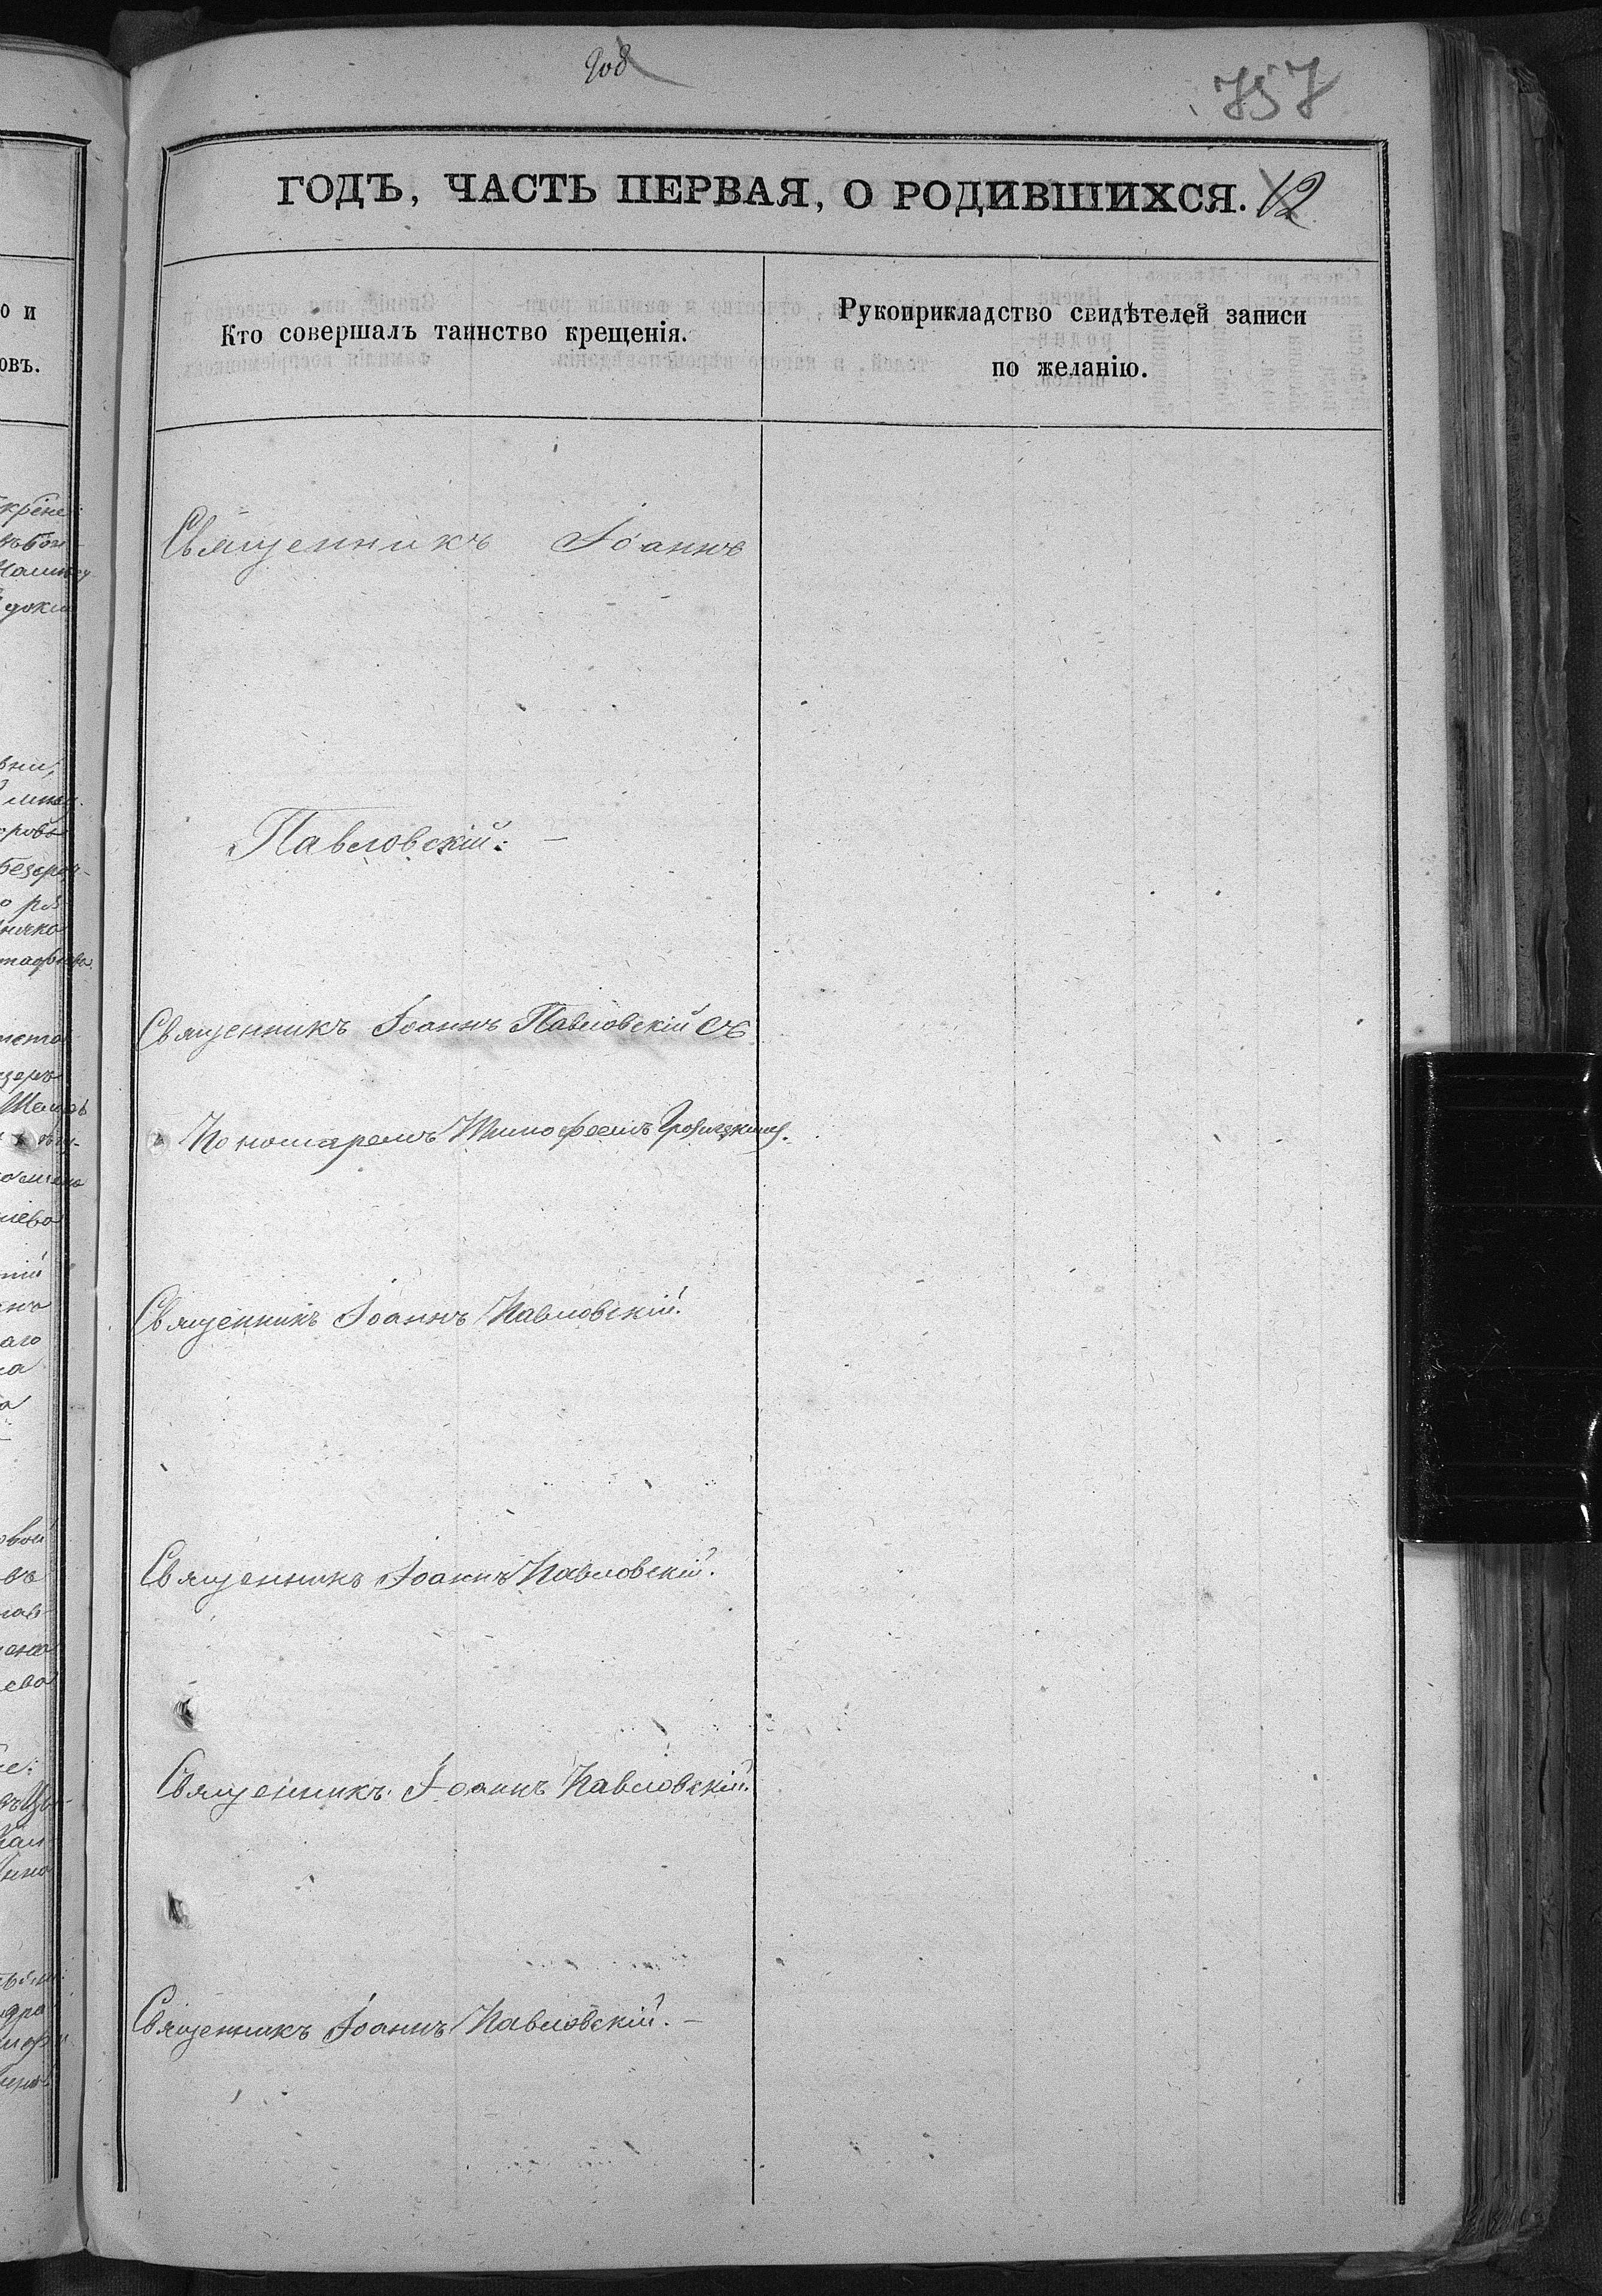 757
ГОДЪ, ЧАСТЬ ПЕРВАЯ, О РОДИВШИХСЯ. 12
Кто совершалъ таинство крещенія.
Рукоприкладство свидѣтелей записи
по желанію.
Священникъ Іоаннъ
Павловскій.
Священникъ Іоаннъ Павловскій съ
Пономаремъ Тимофеемъ
Священникъ Іоаннъ Павловскій.
Священникъ Іоаннъ Павловскій.
Священникъ Іоаннъ Павловскій.
Священникъ Іоаннъ Павловскій.